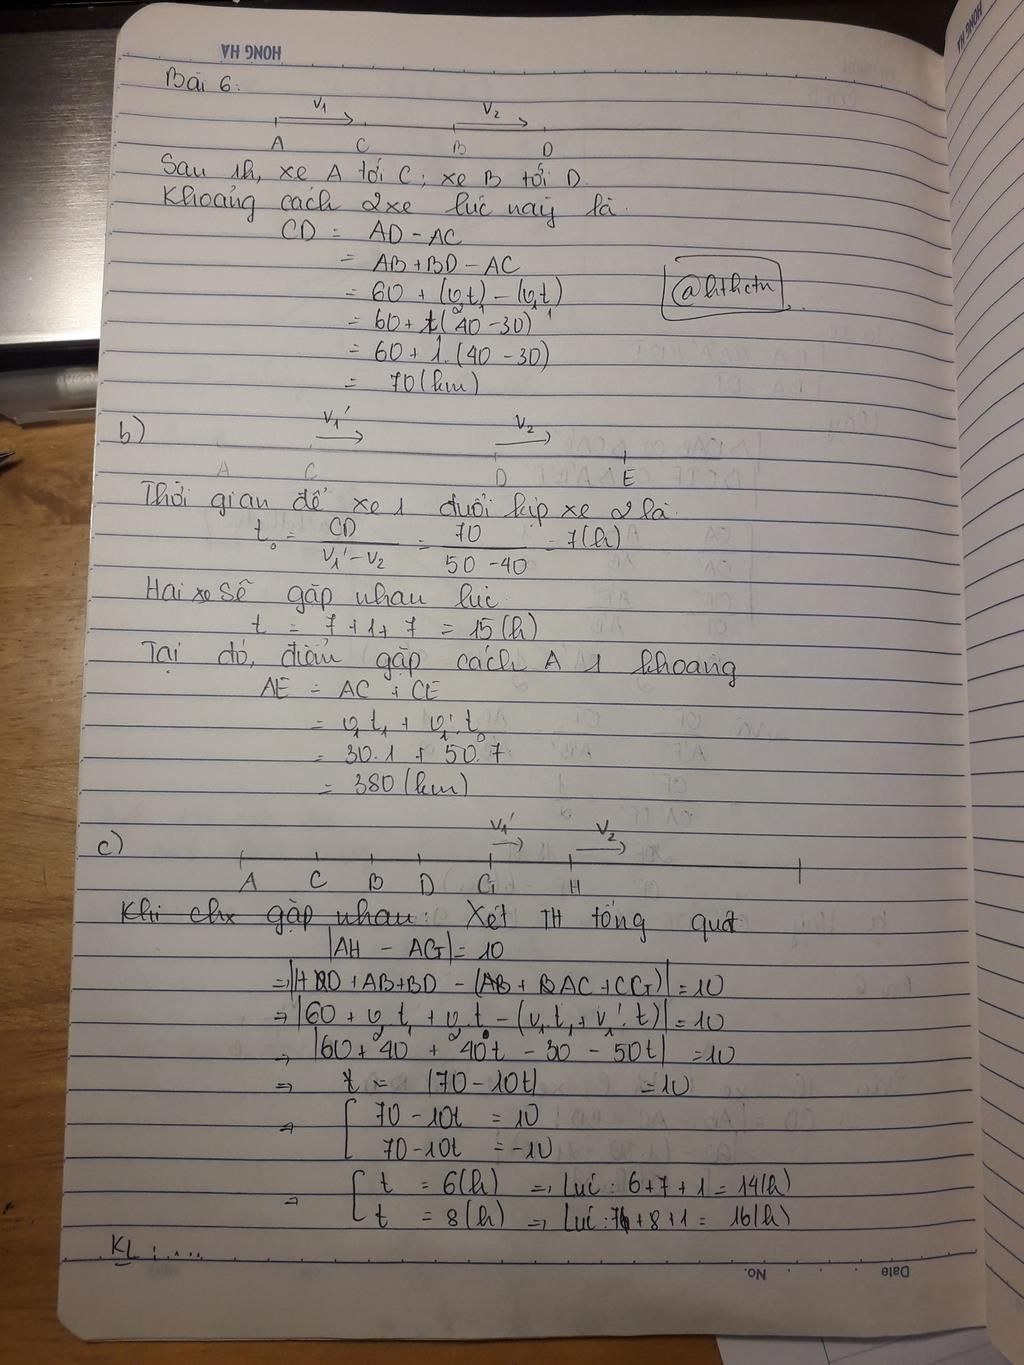 HONG HA
HONG HA
Bài 6:
V₁ V₂
A C B D
Sau 1h, xe A tới C; xe B tới D.
Khoảng cách 2 xe lúc này là.
CD = AD - AC
= AB + BD - AC
= 60 + (v₂t₁) - (v₁t₁)
@hthctn
= 60 + t(40 - 30)
= 60 + 1.(40 - 30)
= 70 (km)
b) V₁' V₂
A C D E
Thời gian để xe 1 đuổi kịp xe 2 là.
t₀ = CD / (V₁' - V₂) = 70 / (50 - 40) = 7(h)
Hai xe sẽ gặp nhau lúc.
t = 7 + 1 + 7 = 15(h)
Tại đó, điểm gặp cách A 1 khoang
AE = AC + CE
= v₁t₁ + v₁'.t₀
= 30.1 + 50.7
= 380 (km)
c) V₁' V₂
A C B D G H
Khi chx gặp nhau: Xét TH tổng quát
|AH - AG| = 10
+ AB + BD - ( AC + CG)| = 10
⇒ |60 + v₂t₁ + v₂.t - (v₁.t₁ + v₁'.t)| = 10
⇒ |60 + 40 + 40t - 30 - 50t| = 10
⇒ |70 - 10t| = 10
⇒ [ 70 - 10t = 10
70 - 10t = -10
⇒ [ t = 6(h) ⇒ Lúc: 6 + 7 + 1 = 14(h)
t = 8(h) ⇒ Lúc: 7 + 8 + 1 = 16(h)
KL: ....
No. Date